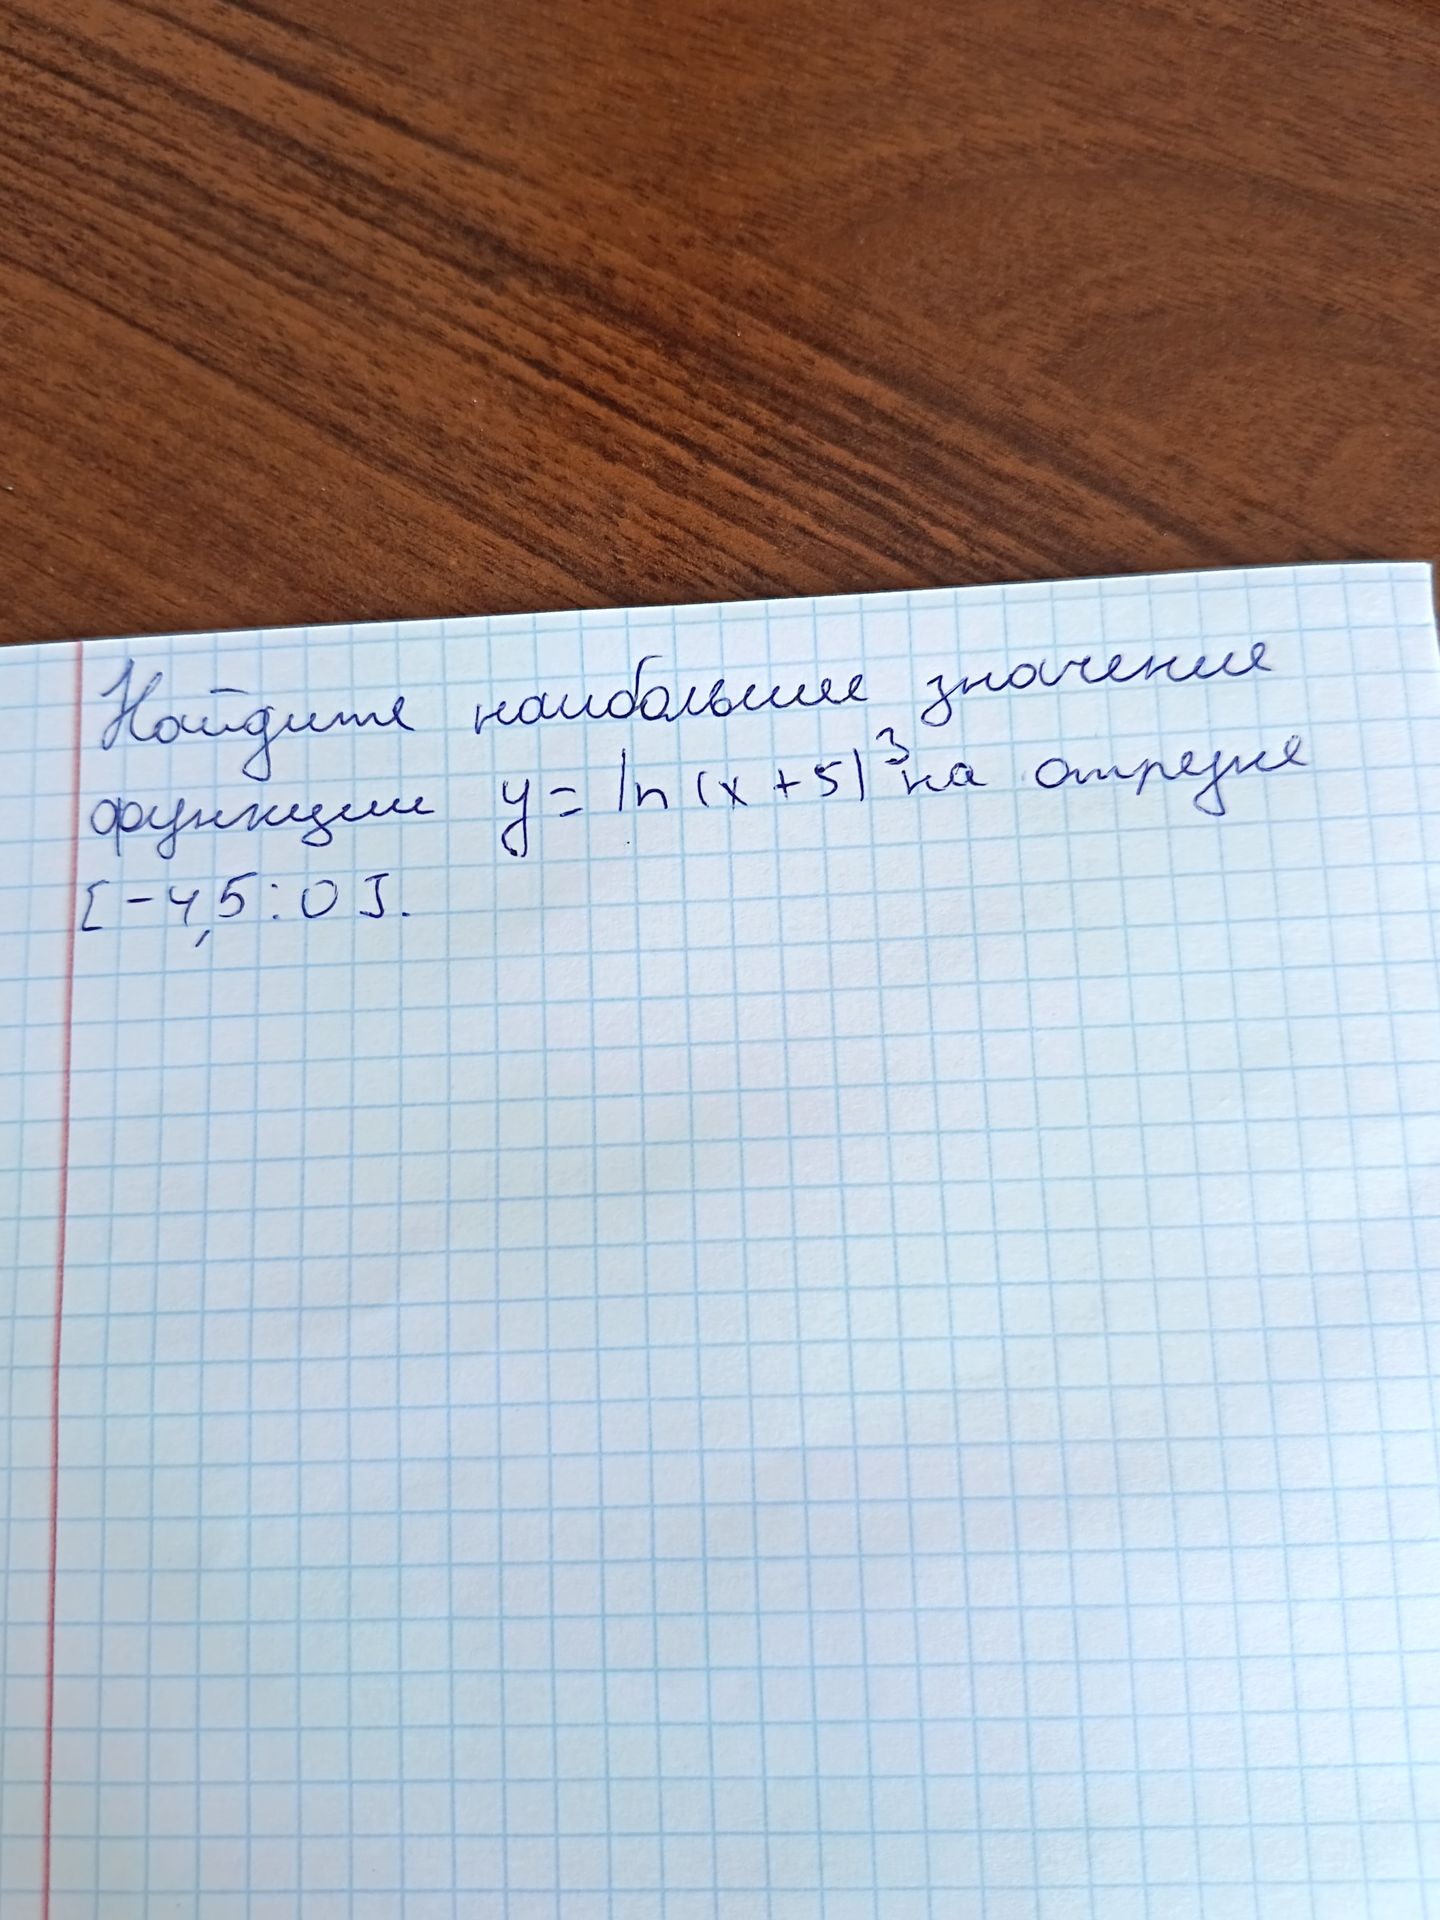 Найдите наибольшее значение
функции y = ln(x+5)³ на отрезке
[-4,5:0].